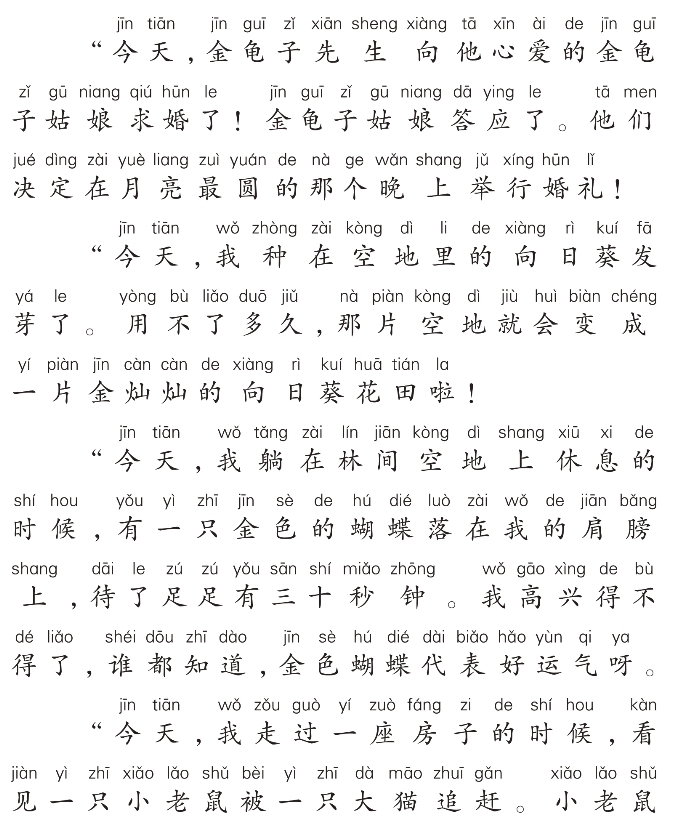 jīn tiān jīn guī zǐ xiān sheng xiàng tā xīn ài de jīn guī
“今天,金龟子先生向他心爱的金龟
zǐ gū niang qiú hūn le jīn guī zǐ gū niang dā ying le tā men
子姑娘求婚了!金龟子姑娘答应了。他们
jué dìng zài yuè liang zuì yuán de nà ge wǎn shang jǔ xíng hūn lǐ
决定在月亮最圆的那个晚上举行婚礼!
jīn tiān wǒ zhòng zài kòng dì li de xiàng rì kuí fā
“今天,我种在空地里的向日葵发
yá le yòng bù liǎo duō jiǔ nà piàn kòng dì jiù huì biàn chéng
芽了。用不了多久,那片空地就会变成
yí piàn jīn càn càn de xiàng rì kuí huā tián la
一片金灿灿的向日葵花田啦!
jīn tiān wǒ tǎng zài lín jiān kòng dì shang xiū xi de
“今天,我躺在林间空地上休息的
shí hou yǒu yì zhī jīn sè de hú dié luò zài wǒ de jiān bǎng
时候,有一只金色的蝴蝶落在我的肩膀
shang dāi le zú zú yǒu sān shí miǎo zhōng wǒ gāo xìng de bù
上,待了足足有三十秒钟。我高兴得不
dé liǎo shéi dōu zhī dào jīn sè hú dié dài biǎo hǎo yùn qi ya
得了,谁都知道,金色蝴蝶代表好运气呀。
jīn tiān wǒ zǒu guò yí zuò fáng zi de shí hou kàn
“今天,我走过一座房子的时候,看
jiàn yì zhī xiǎo lǎo shǔ bèi yì zhī dà māo zhuī gǎn xiǎo lǎo shǔ
见一只小老鼠被一只大猫追赶。小老鼠